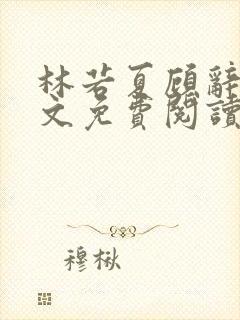 林若夏顾辭
文免費閱讀
穆楸